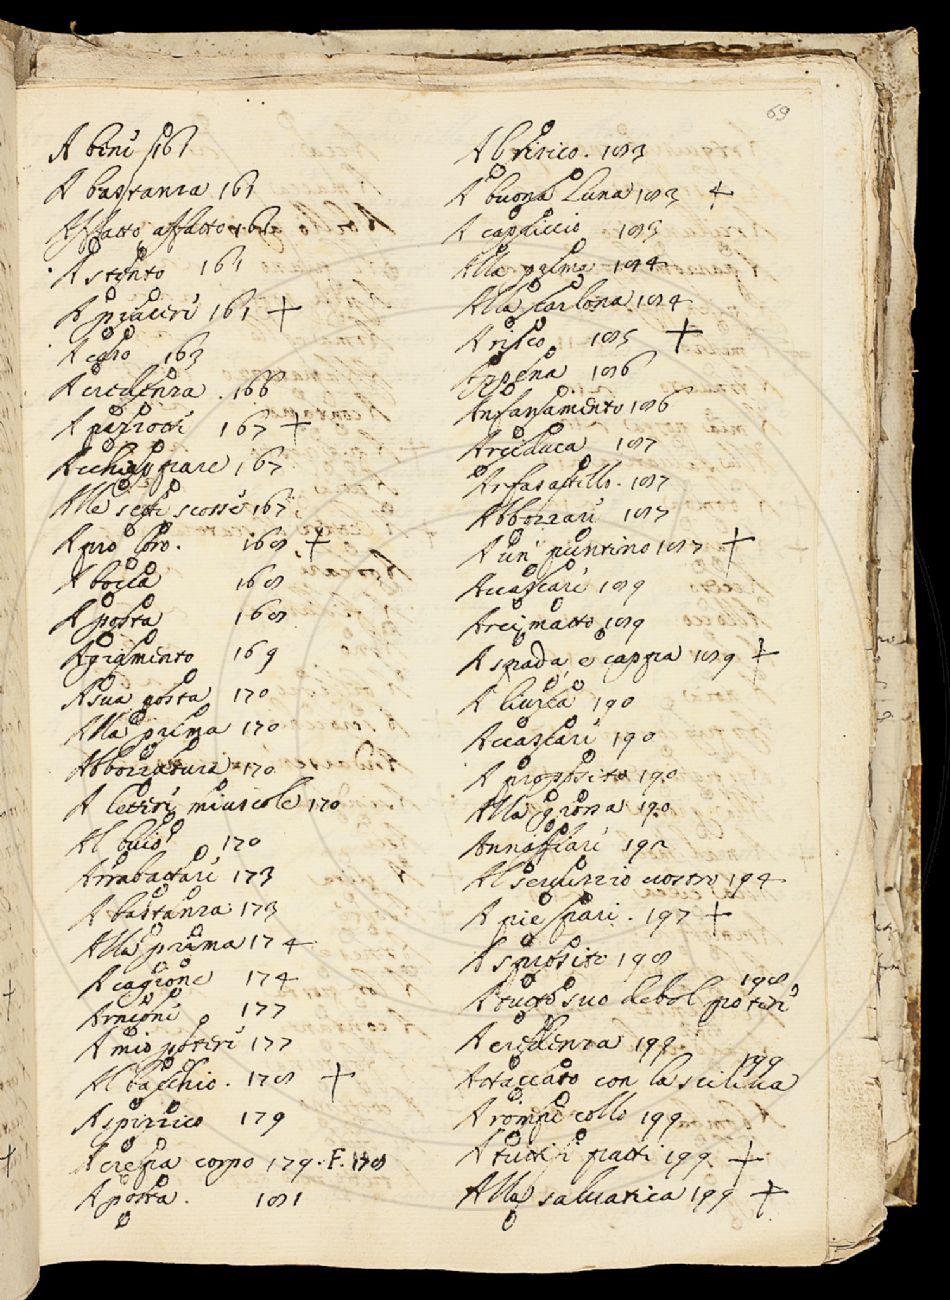 69
A beni 161
A bastanza 161
Affatto affatto 161
A stento 161
A piaceri 161 +
A caso 163
A credenza . 166
A pazzotti 167 +
Acchiappare 167
Alle sette scosse 167
A pro loro. 168 +
A bocca 168
A posta 168
Agiamento 169
A sua posta 170
Alla prima 170
Abborratura 170
A lettere miuscole 170
Al buio 170
Arrabattari 173
A bastanza 173
Alla prima 174
A cagione 174
Arnioni 177
A mio poteri 177
Al bacchio . 178 +
A spizzico 179
A crepa corpo 179. F. 178
A posta . 181
Al 183
A buona luna 183 +
A capriccio 183
Alla palma 184
Alla scarlona 184
A risico 185 +
Appena 186
Anfanamento 186
Arciduca 187
Arfasatello . 187
Abborrari 187
A un' puntino 187 +
Accascari 189
Arcimatto 189
A spada, e cappa 189 +
A liurea 190
Accascari 190
A proposito 190
Alla grossa 190
Annaffiari 192
Al seruizzio nostro 194
A pie pari . 197 +
A sproposito 198
A tutto suo debol poteri 198
A credenza 199
Attaccato con la sciliua 199
A rompi collo 199
A tutti i patti 199 +
Alla saluatica 199 +